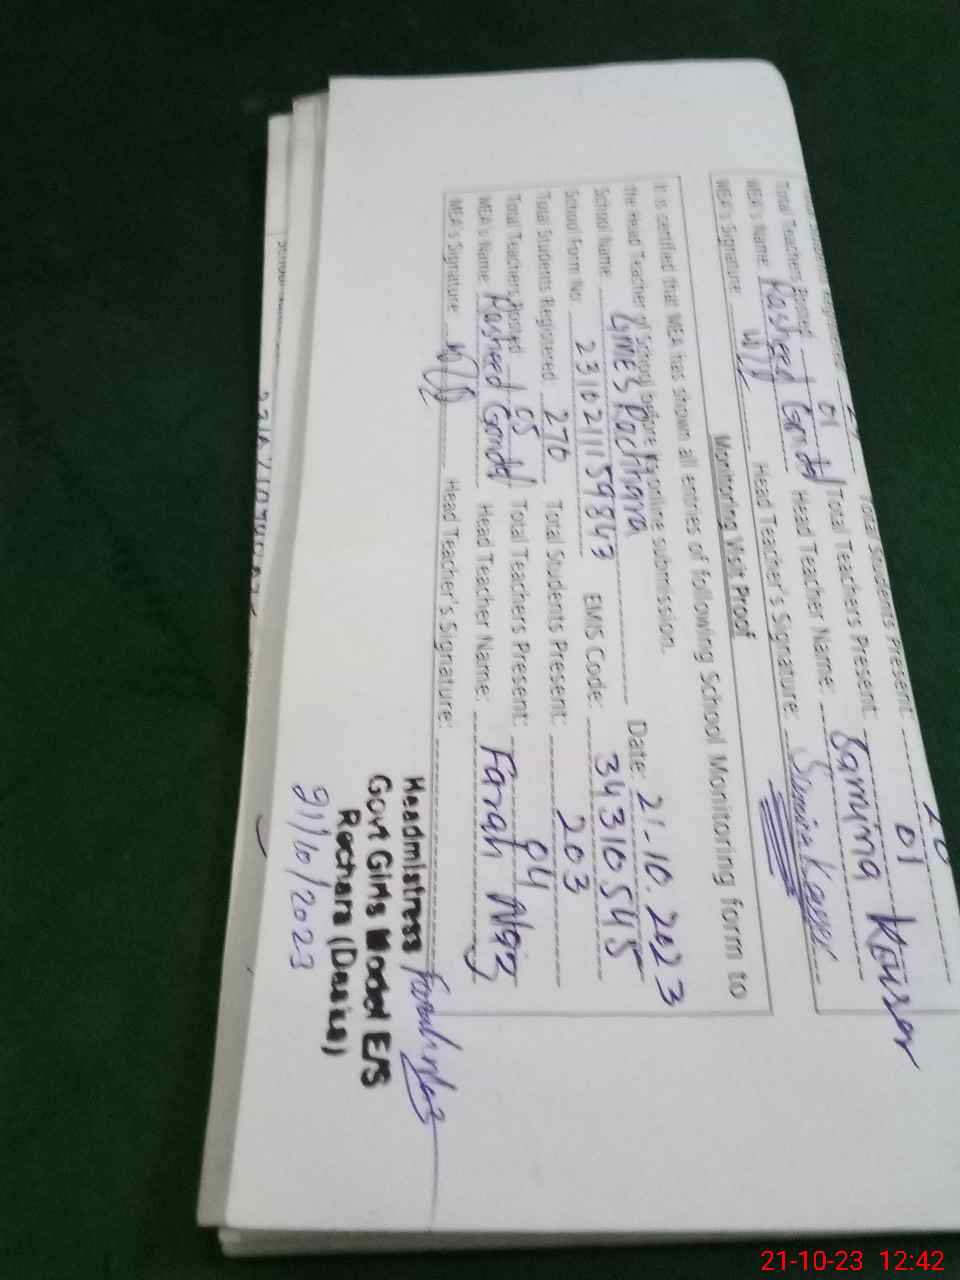 Total Students Present:
Total Teachers Posted 01 Total Teachers Present: 01
MEA's Name: Rasheed Gondal Head Teacher Name: Samina Kousar
MEA's Signature: Head Teacher's Signature:
Monitoring Visit Proof
It is certified that MEA has shown all entries of following School Monitoring form to
the Head Teacher of School before its online submission.
Date: 21-10.2023
School Name: GMES Rachhara
School Form No. 2310211159843 EMIS Code: 34310545
Total Students Registered: 276 Total Students Present: 203
Total Teachers Posted 05 Total Teachers Present: 04
MEA's Name Rasheed Gondal Head Teacher Name: Farah Naz
MEA's Signature Head Teacher's Signature:
Headmistress
Govt Girls Model E/S
Rachara (Daska)
21/10/2023
21-10-23 12:42